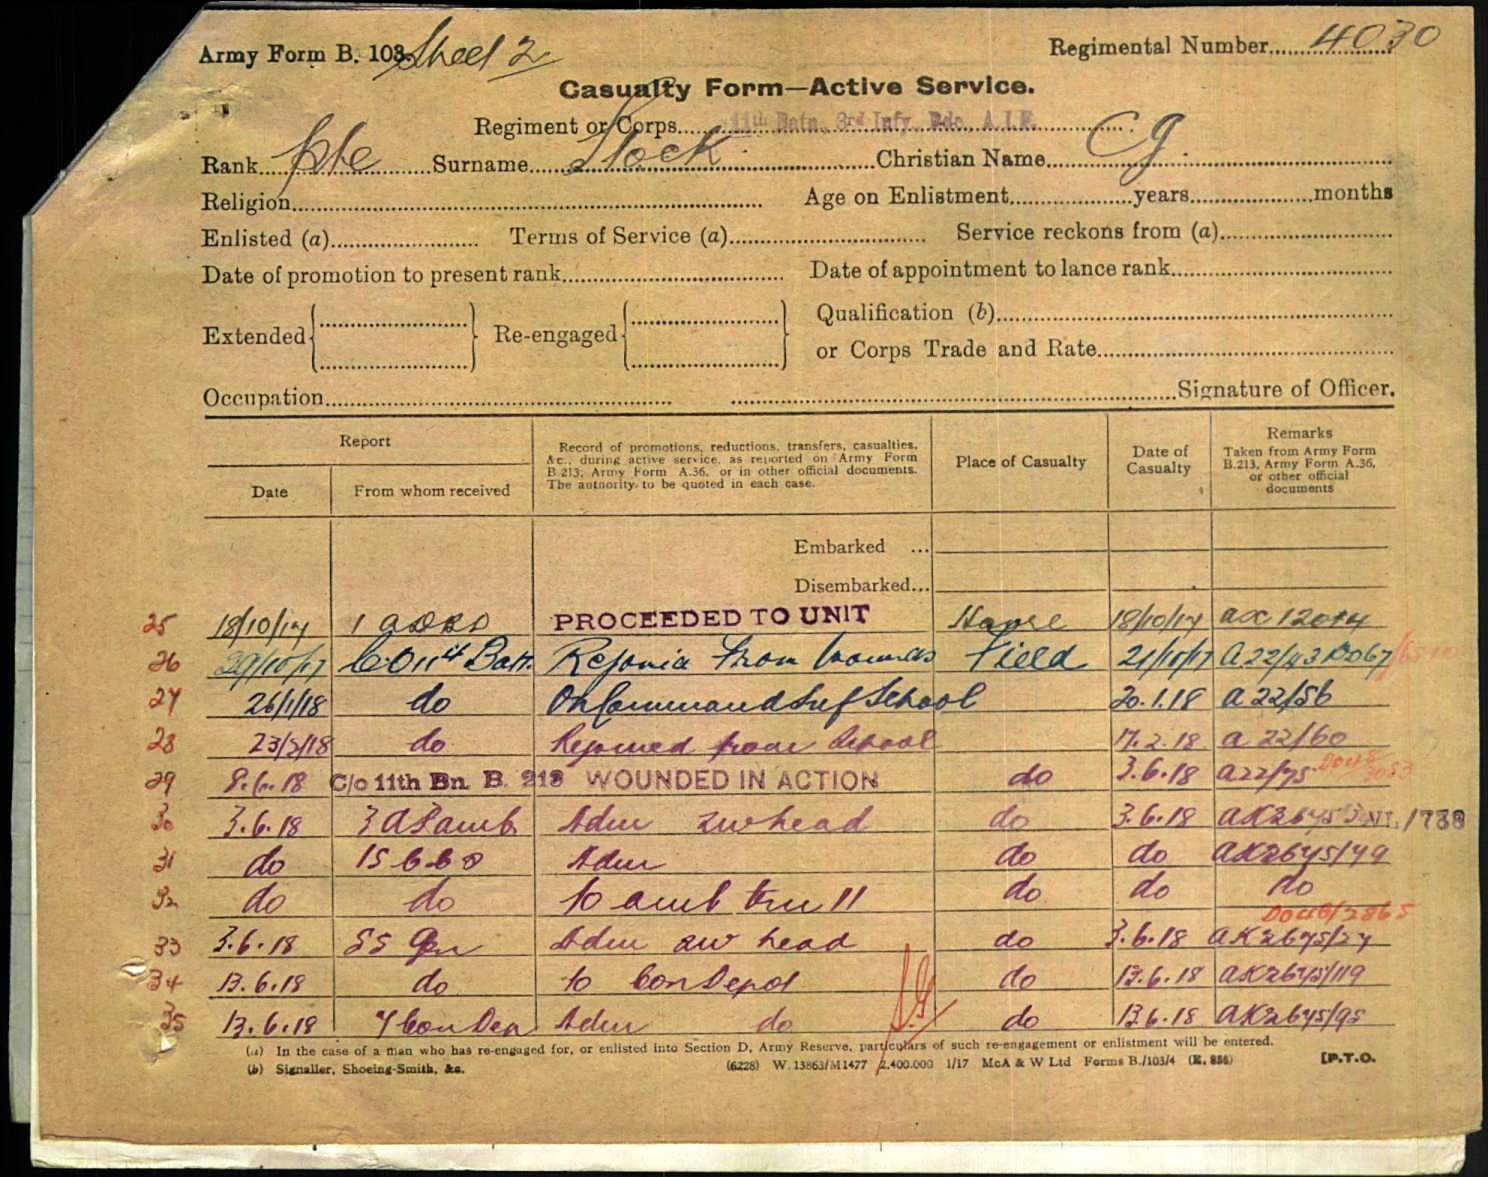 Army Form B. 103. Sheet 2
Regimental Number 4030
Casualty Form—Active Service.
Regiment or Corps 11th Batn, 3rd Infy. Bde, A.I.F.
Rank Pte Surname Stock Christian Name C G
Religion Age on Enlistment years months
Enlisted (a) Terms of Service (a) Service reckons from (a)
Date of promotion to present rank Date of appointment to lance rank
Extended Re-engaged Qualification (b)
or Corps Trade and Rate
Occupation Signature of Officer.
Report
Date From whom received
Record of promotions, reductions, transfers, casualties,
&c., during active service, as reported on Army Form
B 213, Army Form A.36, or in other official documents.
The authority to be quoted in each case.
Place of Casualty
Date of
Casualty
Remarks
Taken from Army Form
B.213, Army Form A.36,
or other official
documents
Embarked ...
Disembarked...
25 18/10/17 PROCEEDED TO UNIT Havre 18/10/17
26 29/10/17 CO 11th Batt. Rejoined from Wounds Field 21/10/17
27 26/1/18 do On Command Inf School 20.1.18 A 22/56
28 23/2/18 do Rejoined from School 17.2.18 A 22/60
29 8.6.18 C/o 11th Bn B. 213 WOUNDED IN ACTION do 3.6.18 A22/75
30 3.6.18 3 A F amb. Adm GSW head do 3.6.18
31 do 15 CCS Adm do do AK2645/49
32 do do to amb trn 11 do do do
33 3.6.18 55 Gen Adm GSW head do 3.6.18 AK2645/27
34 13.6.18 do to Con Depot do 13.6.18 AK2645/119
35 13.6.18 7 Con Dep Adm do do 13.6.18 AK2645/95
(a) In the case of a man who has re-engaged for, or enlisted into Section D, Army Reserve, particulars of such re-engagement or enlistment will be entered.
(b) Signaller, Shoeing-Smith, &c. (6228) W. 13863/M1477 2,400,000 1/17 McA & W Ltd Forms B./103/4 (E. 856) [P.T.O.